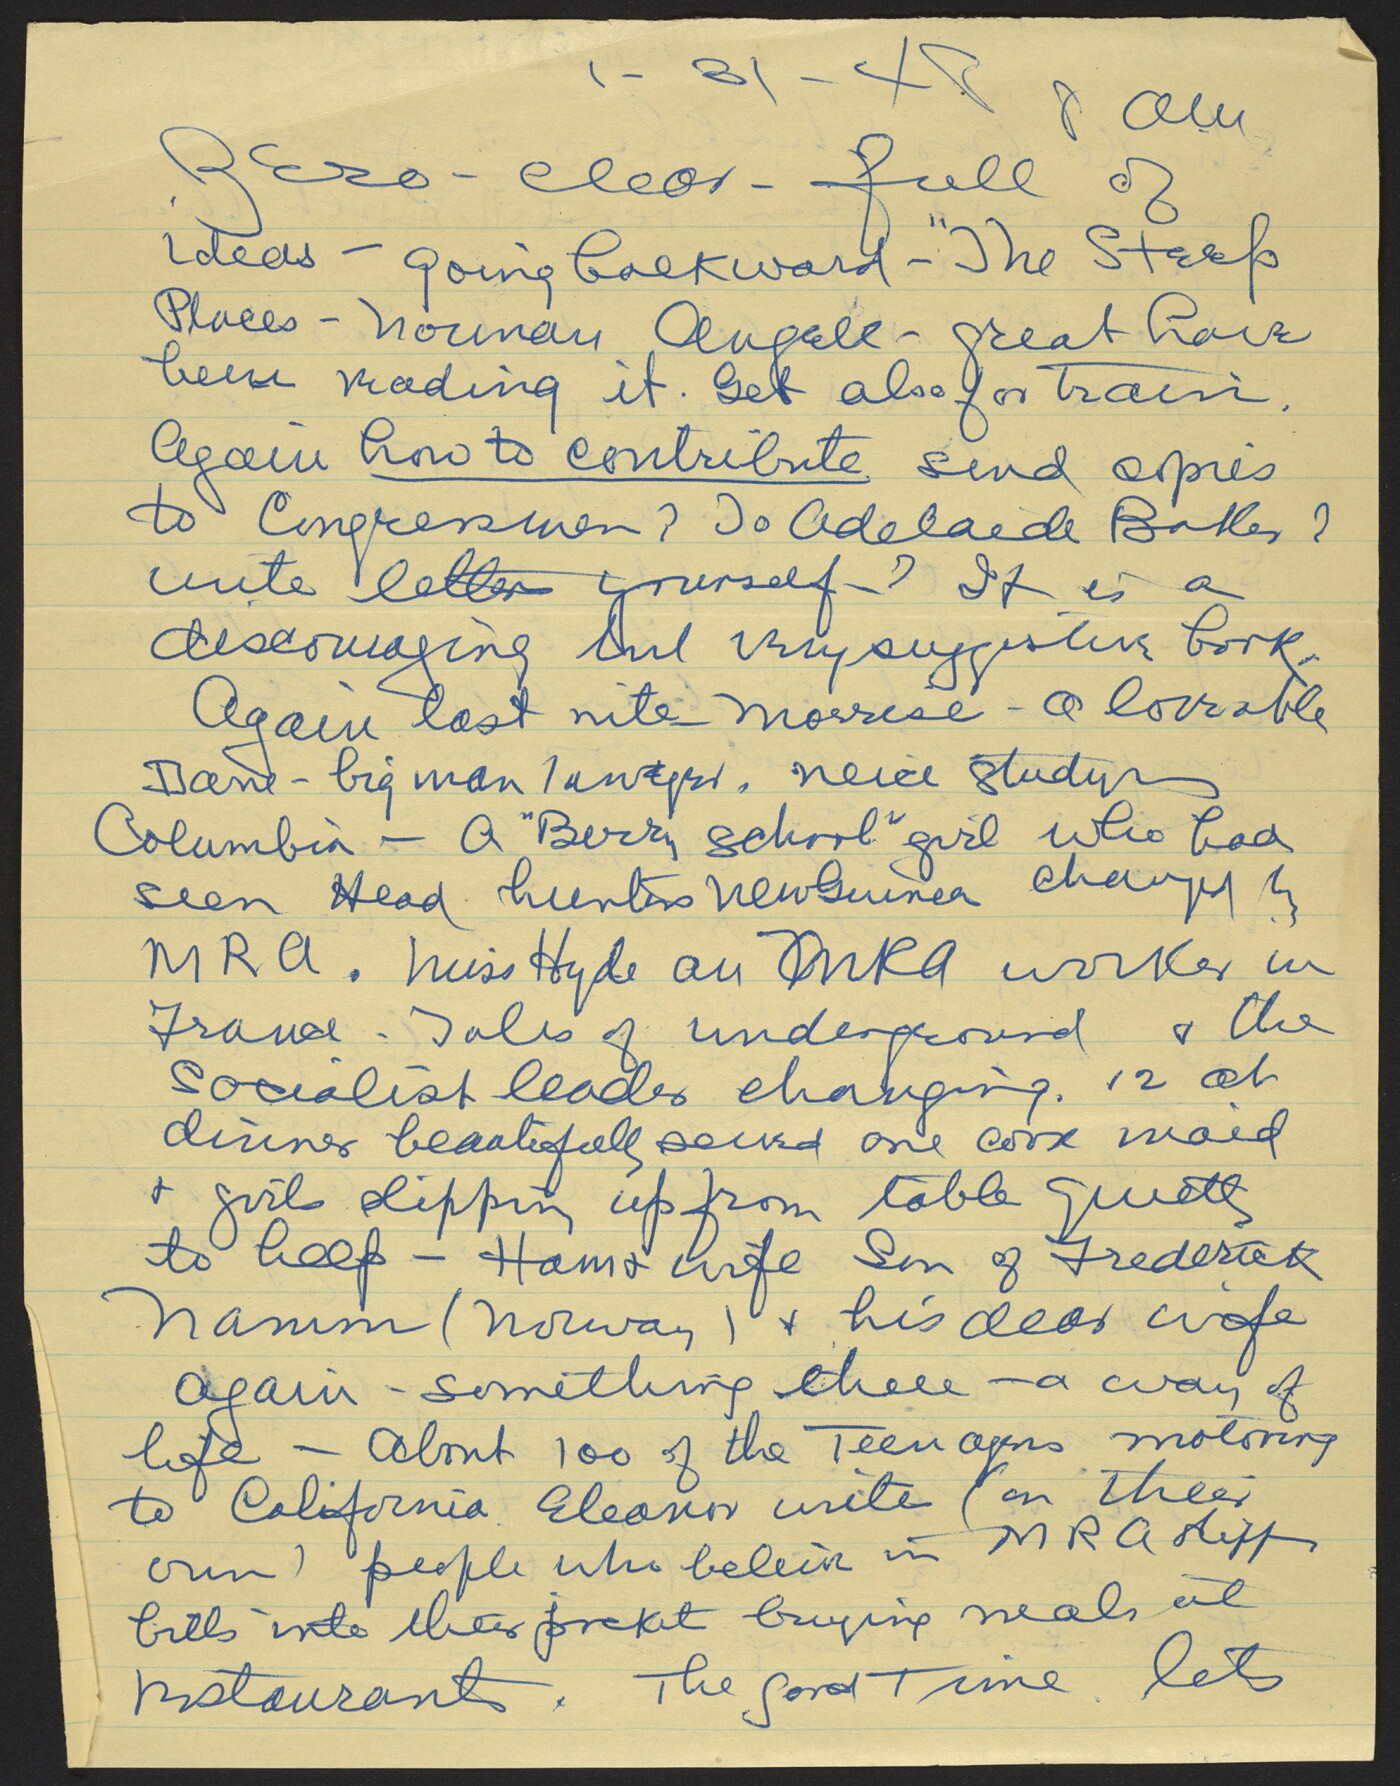 1-31-48 8 AM
Zero - clear - full of
ideas - going backward - "The Steep
Places - Norman Angell - great have
been reading it. Get also for train.
Again how to contribute send copies
to Congressmen? To Adelaide Baker?
write letter yourself - ? It is a
discouraging but very suggestive book.
Again last nite - a loveable
Dane - big man lawyer. neice studying
Columbia - A "Berry school" girl who had
seen Head hunters New Guinea changed by
MRA. Miss Hyde an MRA worker in
France - Tales of underground & the
Socialist leader changing. 12 at
dinner beautifully served one cook maid
& girls slipping up from table quietly
to help - Hans & wife Son of Frederick
Namm (Norway) & his dear wife
again - something there - a way of
life - About 100 of the Teen agers motoring
to California Eleanor write (on their
own) people who beleive in MRA slipp
bills into their pocket buying meals at
restaurants. The good Time lets